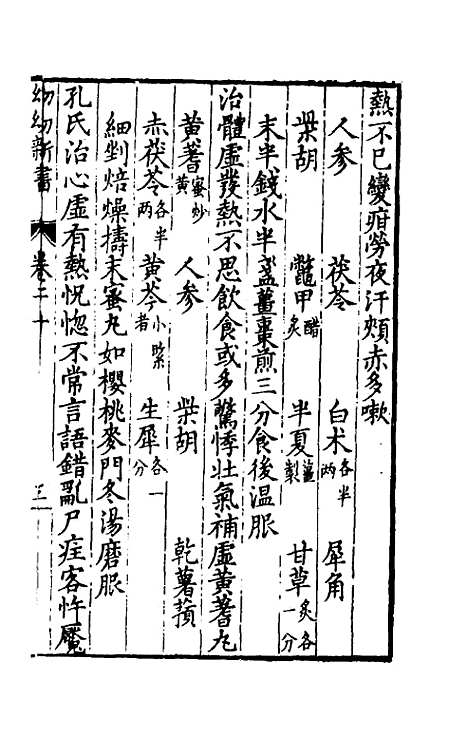 熱不已變疳勞夜汗頰赤多嗽
人參　茯苓　白术各半兩　犀角
柴胡　鼈甲醋炙　半夏薑製　甘草炙各一分
末半錢水半盞薑棗煎三分食後温服
治體虛發熱不思飲食或多驚悸壯氣補虛黃蓍丸
黃蓍蜜炒黃　人參　柴胡　乾薯蕷
赤茯苓各半兩　黃芩小緊者　生犀各一分
細剉焙燥擣末蜜丸如櫻桃麥門冬湯磨服
孔氏治心虛有熱恍惚不常言語錯亂尸疰客忤魘
幼幼新書　卷二十　三